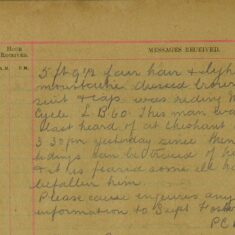 HOUR
RECEIVED.
MESSAGES RECEIVED.
A.M. P.M.
5 ft 9½ fair hair & slight
moustache dressed brown
suit & cap was riding M
Cycle. L.B.60. This man was
last heard of at Cheshunt
3.30pm yesterday since then
tidings can be traced of h
& it is feared some ill ha
befallen him.
Please cause enquires any
information to Supt Foste
P.C.